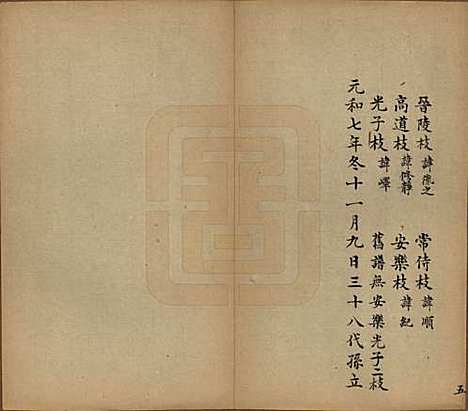 晉陵枝諱湛之　常侍枝諱順
高道枝諱修靜　安樂枝諱紀
光子枝諱嶧　舊譜無安樂光子二枝
元和七年冬十一月九日三十八代孫立
五